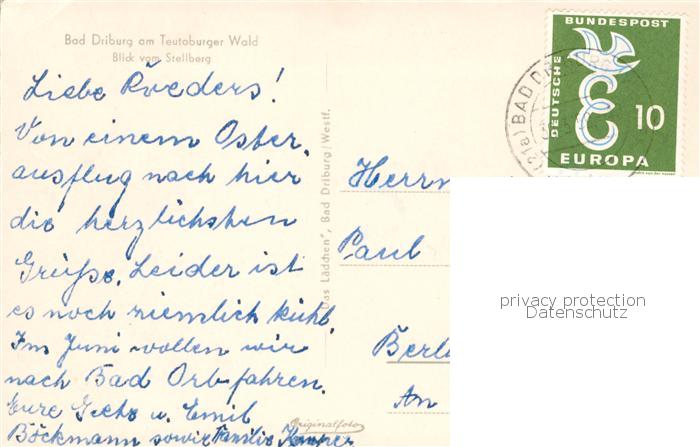 Bad Driburg am Teutoburger Wald
Blick vom Stellberg
Liebe Roeders!
Von einem Oster-
ausflug nach hier
die herzlichsten
Grüße. Leider ist
es noch ziemlich kühl.
Im Juni wollen wir
nach Bad Orb fahren.
Eure u. Emil
Böckmann sowie Familie
Originalfoto
Das Lädchen", Bad Driburg/Westf.
DEUTSCHE
BUNDESPOST
10
EUROPA
(21a) BAD
Herrn
Paul
Berl
Am
privacy protection
Datenschutz